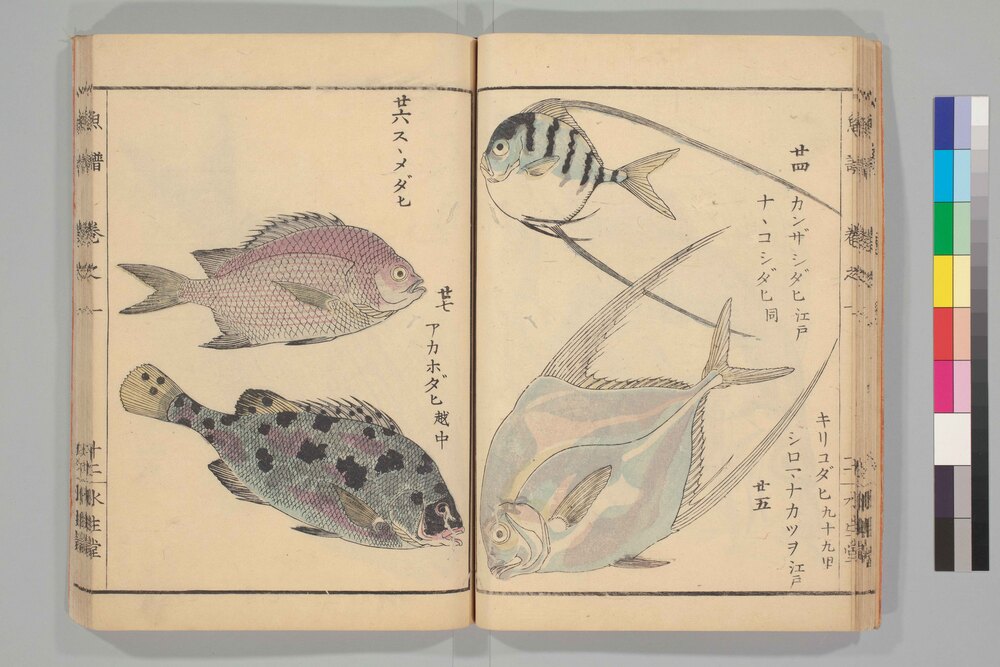 廿四
カンザシダヒ江戸
ナヽコシダヒ同
キリコダヒ九十九里
シロマナカツヲ江戸
廿五
廿六スヽメダヒ
廿七
アカホダヒ越中
魚譜 巻之一
十二 水生堂